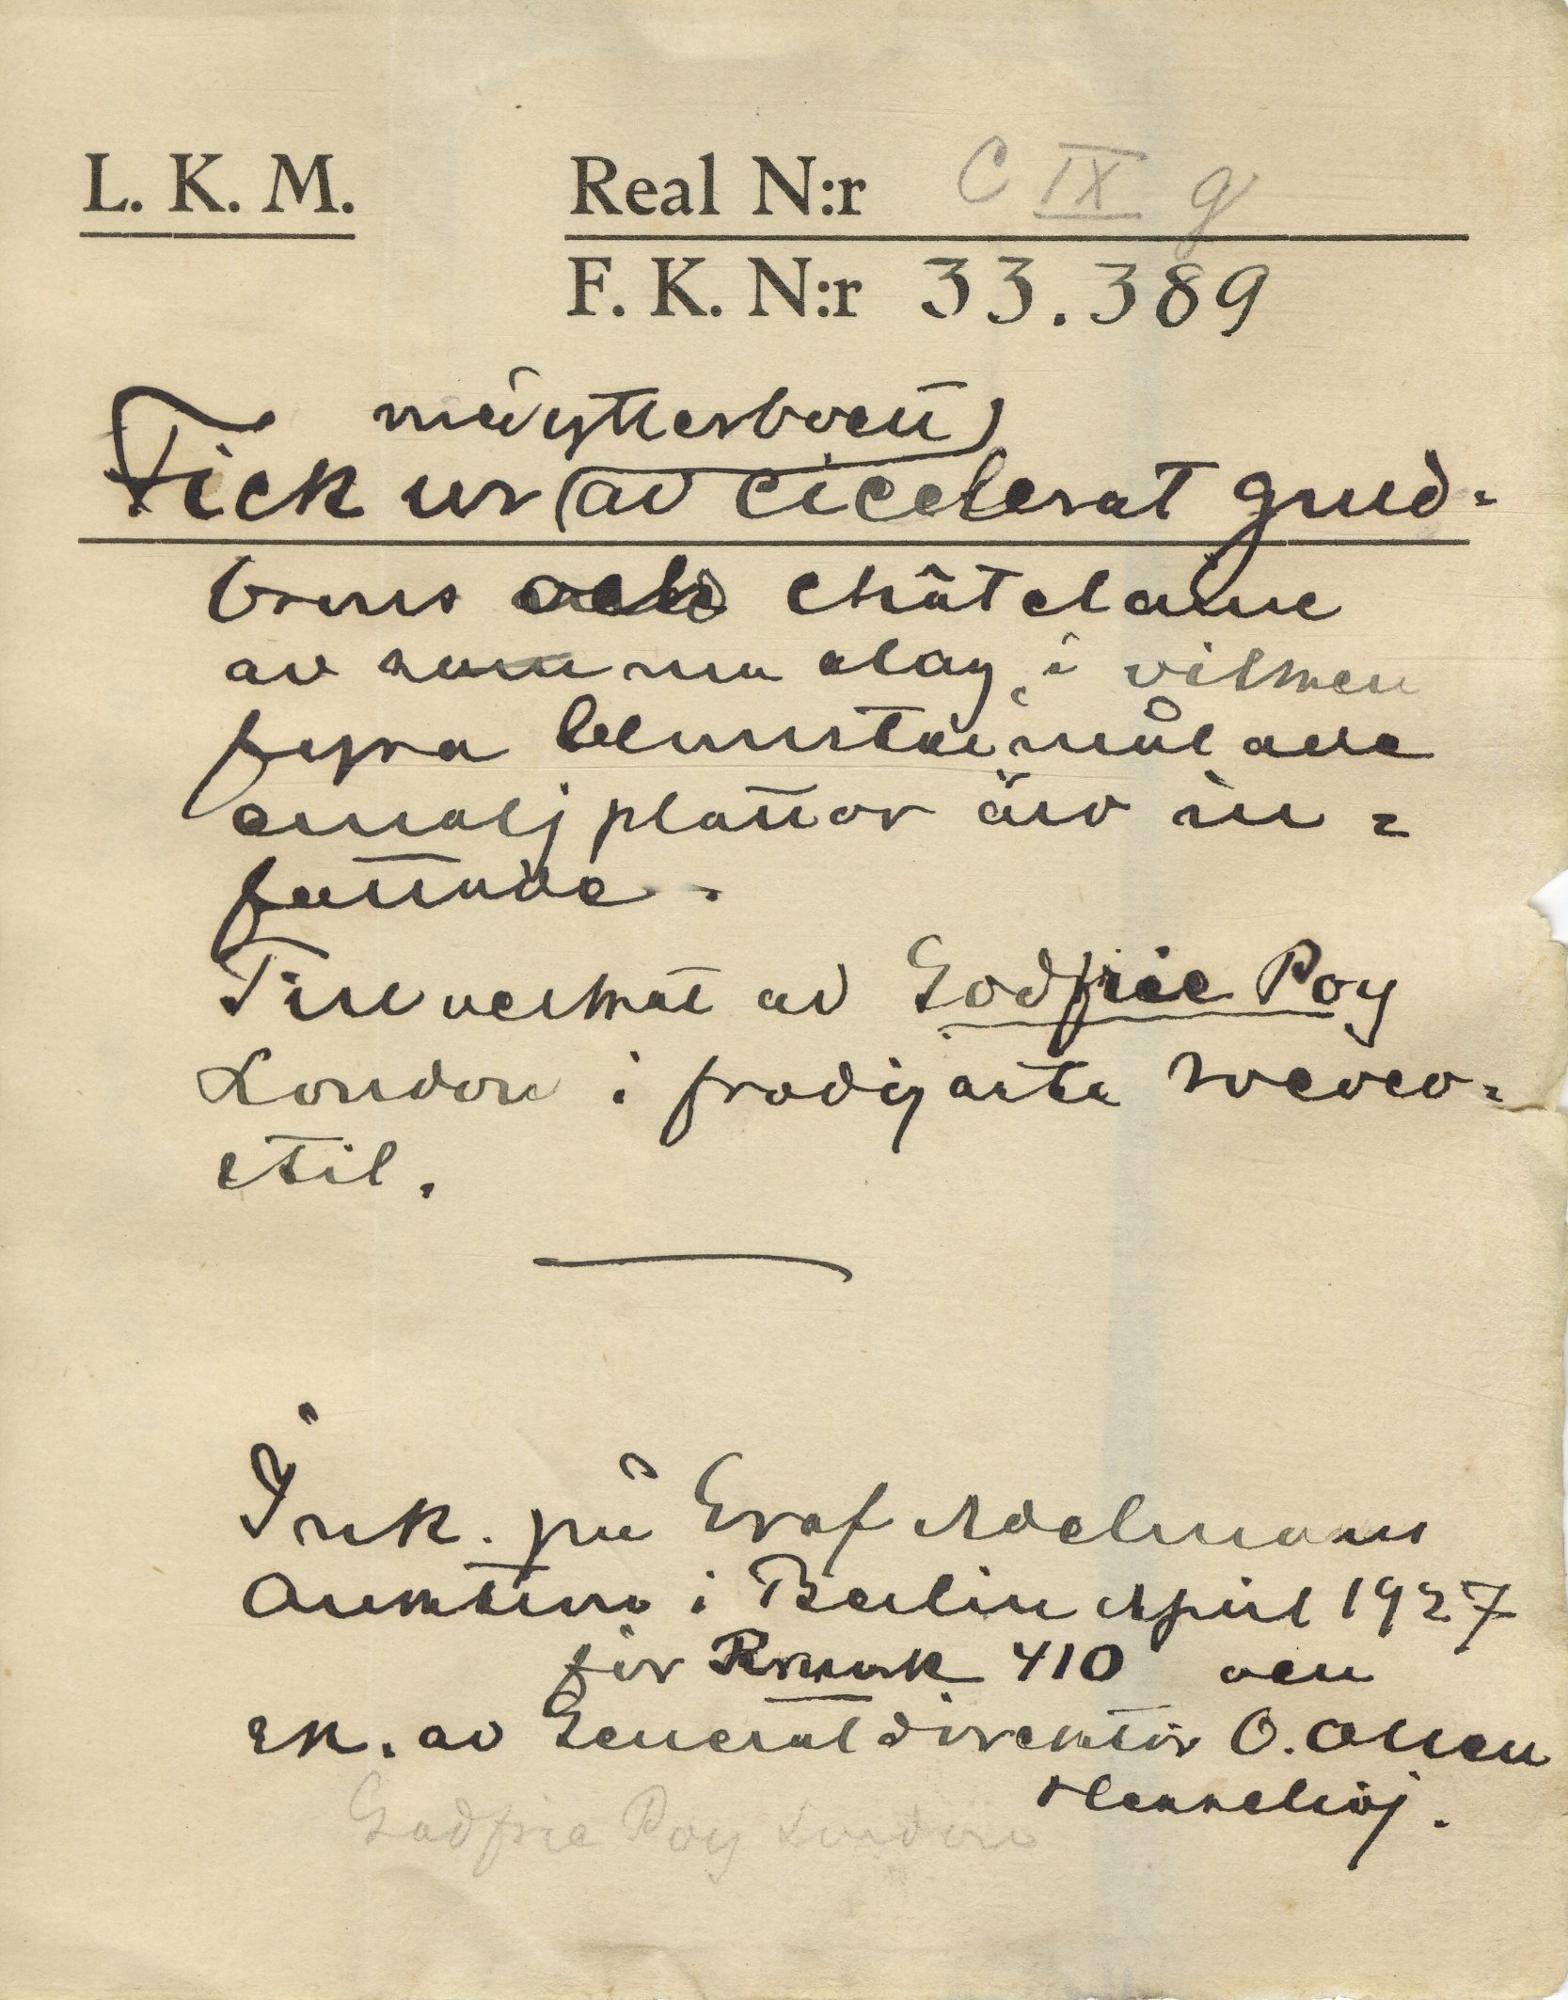 L. K. M. Real N:r C IX g
F. K. N:r 33.389
med ytterboett
Fick ur (av cicelerat guld-
brons och châtelaine
av samma slag, i vilken
fyra blomstermålade
emaljplattor äro in-
fattade.
Tillverkat av Godfrie Poy
London i frodigaste rococo-
stil.
Ink. på Graf Adelmanns
Auktion i Berlin April 1927
för Rmark 410 och
sk. av Generaldirektör O.
Godfrie Poy London